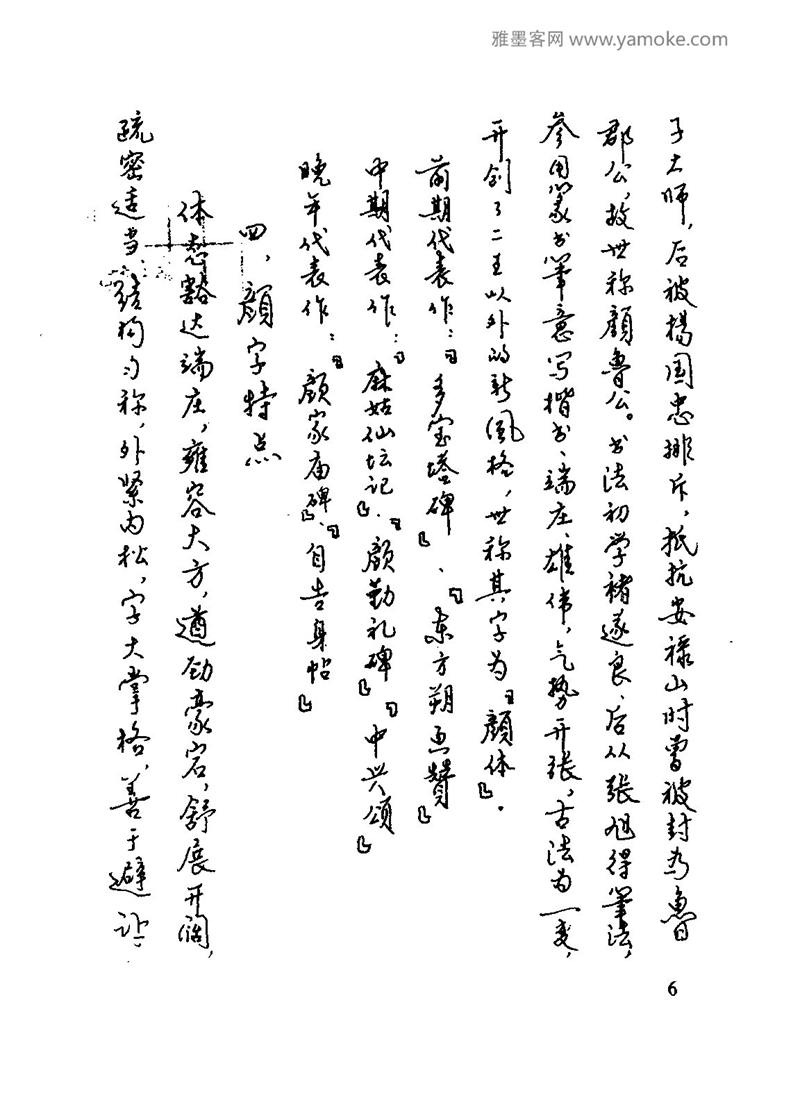 雅墨客网 www.yamoke.com
子太师，后被杨国忠排斥，抵抗安禄山时曾被封为鲁
郡公，故世称顔鲁公。书法初学褚遂良、后从张旭得笔法，
参用篆书笔意写楷书、端庄、雄伟，气势开张，古法为一变，
开创了二王以外的新风格，世称其字为『顔体』。
前期代表作：『多宝塔碑』、『东方朔画赞』
中期代表作：『麻姑仙坛记』．『顔勤礼碑』『中兴颂』
晚年代表作：『顔家庙碑』、『自告身帖』
四、顔字特点
体态豁达端庄，雍容大方，遒劲豪宕，舒展开阔，
疏密适当、结构匀称，外紧内松，字大掌格，善于避让
6